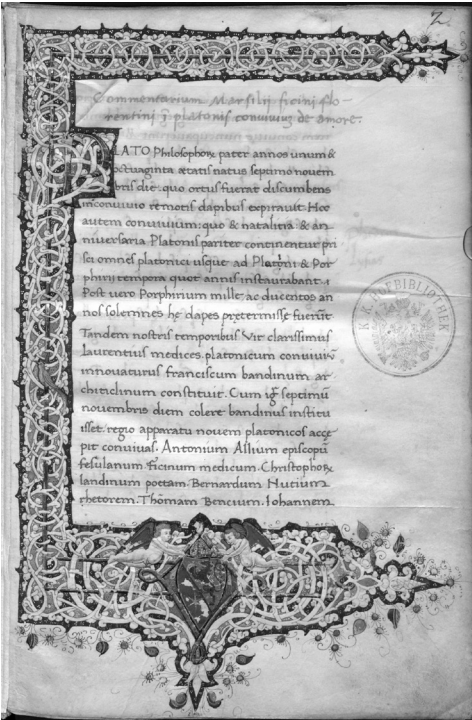 2
Commentarium Marsilij ficini flo-
rentini ĩ platonis convivium de amore.
PLATO Philosophoꝝ pater annos unum &
octuaginta ætatis natus septimo novem
bris die: quo ortus fuerat discumbens
in convivio remotis dapibus expiravit. Hoc
autem convivium: quo & natalitia: & an
niversaria Platonis pariter continentur pri
sci omnes platonici usque ad Plotini & Por
phirii tempora quot annis instaurabant.
Post vero Porphirium mille: ac ducentos an
nos solemnes he dapes pretermisse fuerũt
Tandem nostris temporibus Vir clarissimus
laurentius medices. platonicum conviviũ
innovaturus franciscum bandinum ar
chitriclinum constituit. Cum igr̃ septimũ
novembris diem colere bandinus institu
isset. regio apparatu novem platonicos acce
pit convivas. Antonium Allium episcopũ
fesulanum. ficinum medicum. Christophoꝝ
landinum poetam. Bernardum Nutium
rhetorem. Thomam Bencium. Iohannem
K. K. HOFBIBLIOTHEK